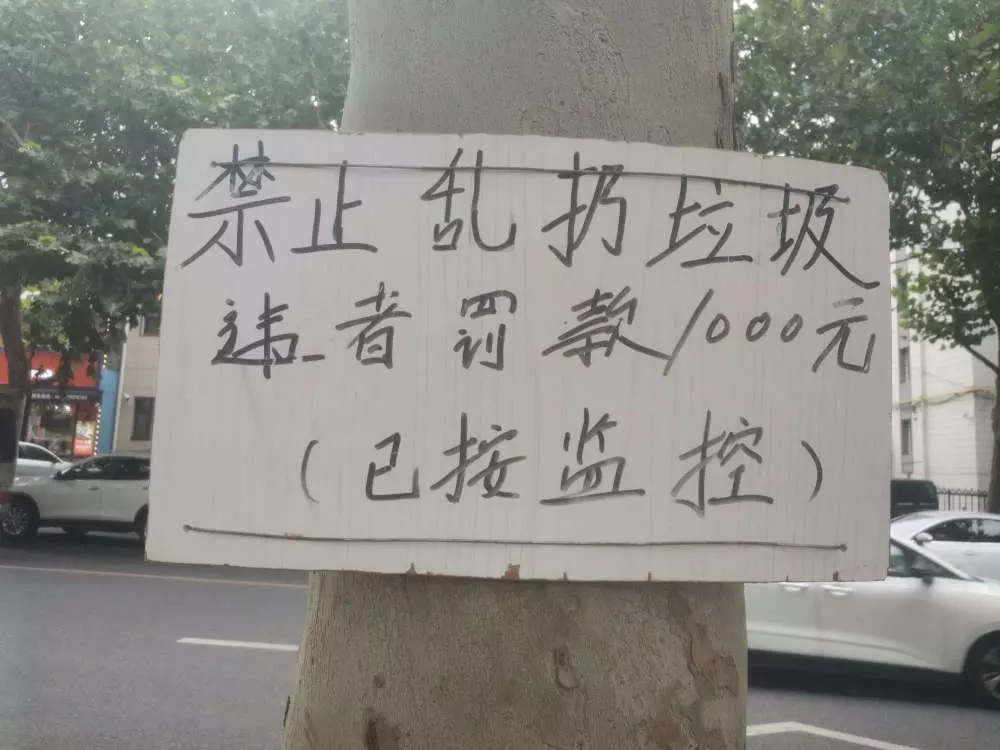 禁止乱扔垃圾
违者罚款1000元
(已按监控)